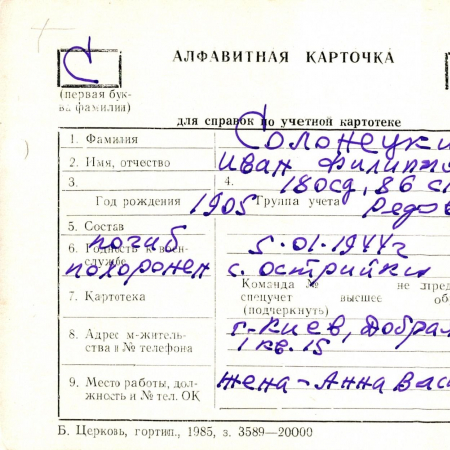 С
АЛФАВИТНАЯ КАРТОЧКА
(первая бук-
ва фамилии)
для справок по учетной картотеке
1. Фамилия Солонецки
2. Имя, отчество Иван Филиппо
3. 4. 180сд, 86 с
Год рождения 1905 Группа учета рядов
5. Состав погиб 5.01.1944г
6. Годность к воен-
службе похоронен с. Острийки
7. Картотека Команда № не пред
спецучет высшее об
(подчеркнуть)
8. Адрес м-житель- г. Киев, Добрал
ства и № телефона 1 кв. 15
9. Место работы, дол- жена - Анна Вас
жность и № тел. ОК
Б. Церковь, гортип., 1985, з. 3589—20000